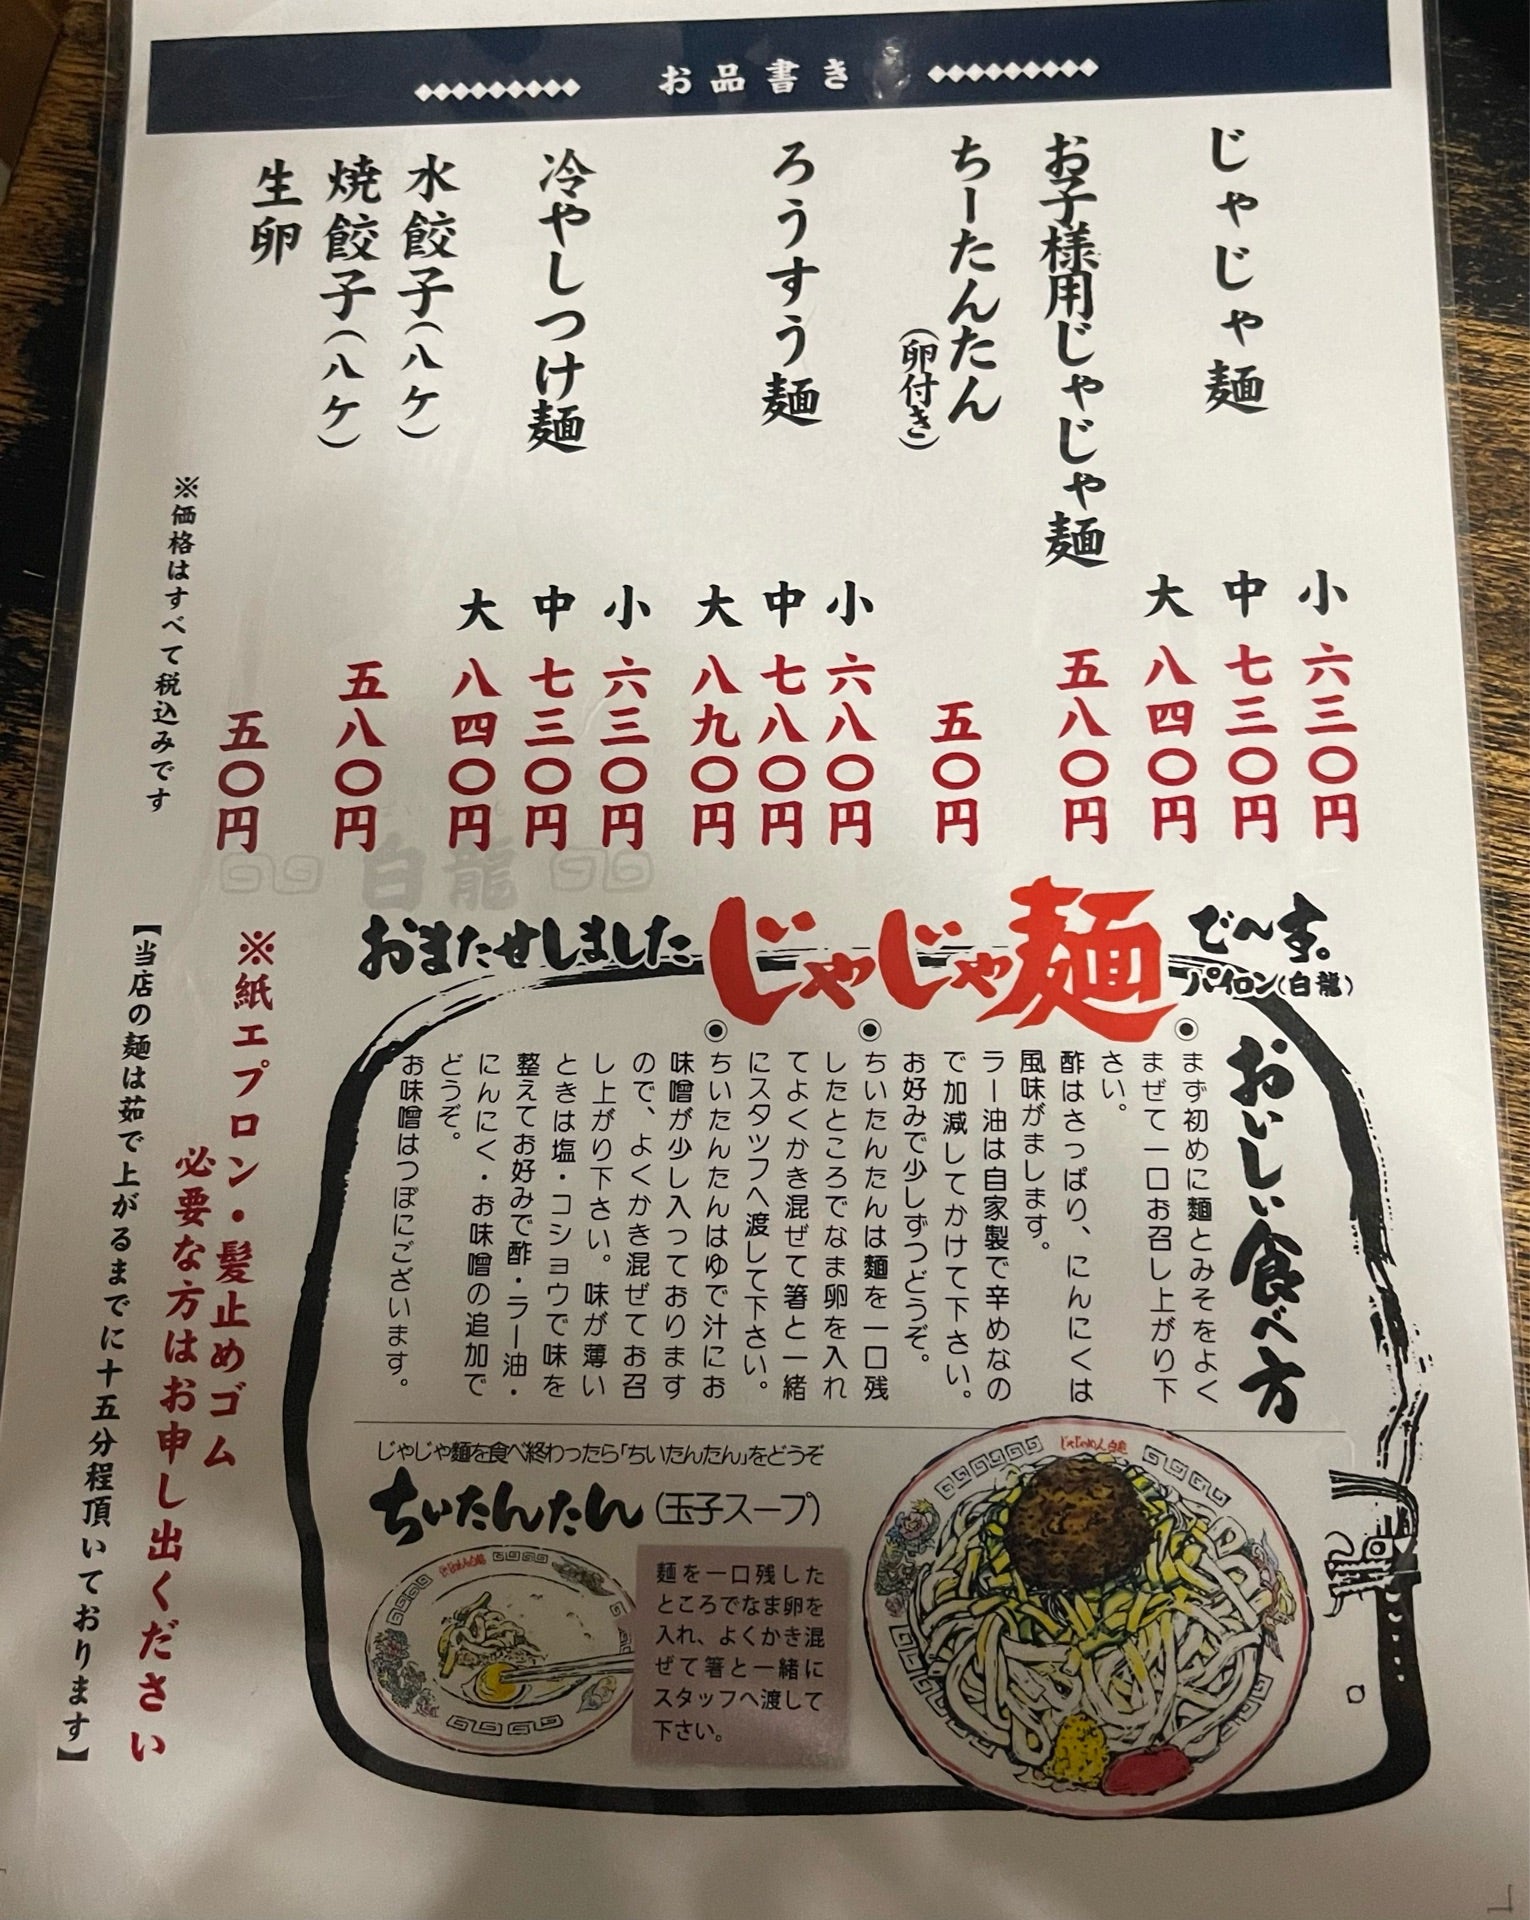 お品書き
じゃじゃ麺
小 六三〇円
中 七三〇円
大 八四〇円
お子様用じゃじゃ麺
五八〇円
ちーたんたん
(卵付き)
五〇円
ろうすう麺
小 六八〇円
中 七八〇円
大 八九〇円
冷やしつけ麺
小 六三〇円
中 七三〇円
大 八四〇円
水餃子(八ケ)
焼餃子(八ケ)
五八〇円
生卵
五〇円
※価格はすべて税込みです
白龍
おまたせしました
じゃじゃ麺
でーす。
パイロン(白龍)
おいしい食べ方
まず初めに麺とみそをよく
まぜて一口お召し上がり下
さい。
酢はさっぱり、にんにくは
風味がまします。
ラー油は自家製で辛めなの
で加減してかけて下さい。
お好みで少しずつどうぞ。
ちいたんたんは麺を一口残
したところでなま卵を入れ
てよくかき混ぜて箸と一緒
にスタッフへ渡して下さい。
ちいたんたんはゆで汁にお
味噌が少し入っております
ので、よくかき混ぜてお召
し上がり下さい。味が薄い
ときは塩・コショウで味を
整えてお好みで酢・ラー油・
にんにく・お味噌の追加で
どうぞ。
お味噌はつぼにございます。
じゃじゃ麺を食べ終わったら「ちいたんたん」をどうぞ
ちいたんたん(玉子スープ)
麺を一口残した
ところでなま卵を
入れ、よくかき混
ぜて箸と一緒に
スタッフへ渡して
下さい。
じゃじゃめん白龍
※紙エプロン・髪止めゴム
必要な方はお申し出ください
【当店の麺は茹で上がるまでに十五分程頂いております】